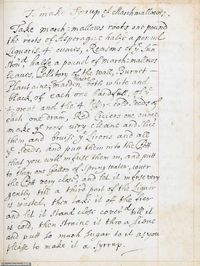 To make Sirrup of Marshmallows,
Take march-mallows roots one pound
the roots of Asparagus halfe a pound
Liquoris, 4 ounces, Reasons of ye Sun
ston'd halfe a pound of march-mallows
leaves, Pellitory of the wall, Burnet
Plantaine, maiden haire, both white and
black, of each one handful, of
4 great and the 4 seeds of
each one dram, Red Cicers one ounce
make yr roots very cleane and slit
them and bruise ye Licoris and all
ye seeds, and putt them into the Pott
that you will infuse them in, and putt
to them one Gallon of Spring water, cover
the Pott very close, and let it infuse very
gently till a third part of the Liquor
is wasted, then take it of the fier
and let it stand close cover'd till it
is cold, then straine it thro a Sieve
and putt so much Sugar to it as you
please to make it a Syrrup.